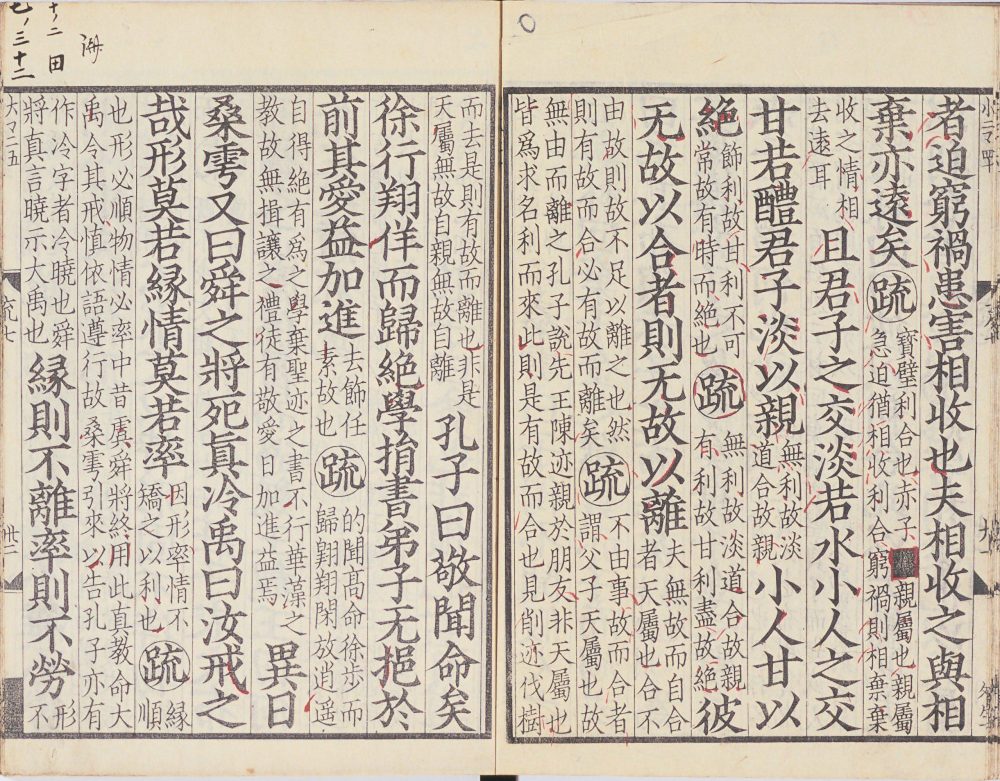 者迫窮禍患害相收也夫相收之與相
棄亦遠矣疏寶璧利合也赤子親屬也親屬
急迫猶相收利合窮禍則相棄棄
收之情相
去遠耳
且君子之交淡若水小人之交
甘若醴君子淡以親
無利故淡
道合故親
小人甘以
絕
飾利故甘利不可
常故有時而絕也
疏
無利故淡道合故親
有利故甘利盡故絕
彼
无故以合者則无故以離
夫無故而自合
者天屬也合不
由故則故不足以離之也然
則有故而合必有故而離矣
疏
不由事故而合者
謂父子天屬也故
無由而離之孔子說先王陳迹親於朋友非天屬也
皆爲求名利而來此則是有故而合也見削迹伐樹
而去是則有故而離也非是
天屬無故自親無故自離
孔子曰敬聞命矣
徐行翔佯而歸絕學捐書弟子无挹於
前其愛益加進
去飾任
素故也
疏
的聞高命徐步而
歸翱翔閑放逍遥
自得絕有爲之學棄聖迹之書不行華藻之
教故無揖讓之禮徒有敬愛日加進益焉
異日
桑雩又曰舜之將死真冷禹曰汝戒之
哉形莫若緣情莫若率
因形率情不
矯之以利也
疏
緣
順
也形必順物情必率中昔虞舜將終用此直教命大
禹令其戒慎依語遵行故桑雩引來以告孔子亦有
作冷字者冷曉也舜
將真言曉示大禹也
緣則不離率則不勞
形
不
十ノ二 田
七ノ三十二